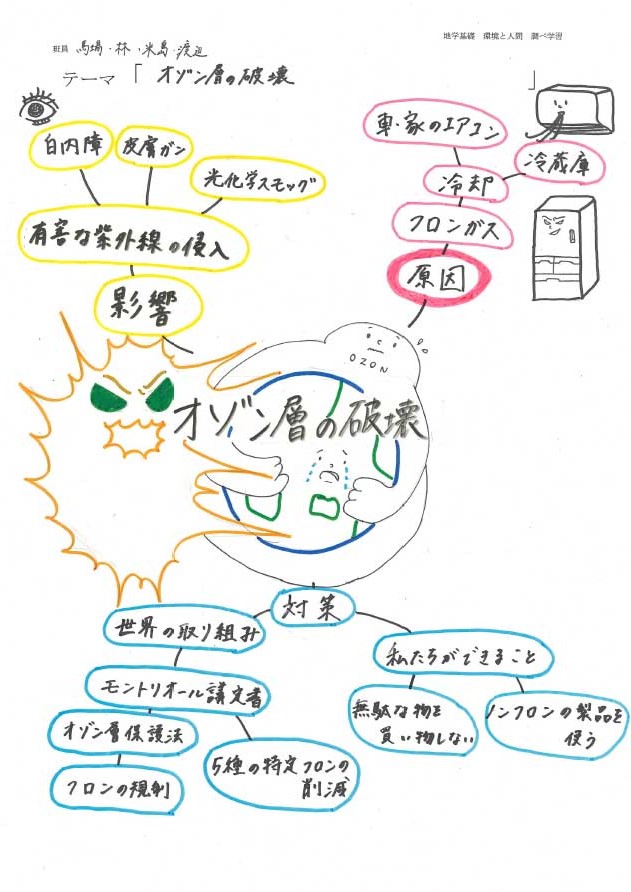 地学基礎 環境と人間 調べ学習
班員 馬場・林・米島・渡辺
テーマ「 オゾン層の破壊 」
白内障
皮膚ガン
光化学スモッグ
有害な紫外線の侵入
影響
車・家のエアコン
冷蔵庫
冷却
フロンガス
原因
OZON
オゾン層の破壊
対策
世界の取り組み
モントリオール議定書
オゾン層保護法
フロンの規制
5種の特定フロンの
削減
私たちができること
無駄な物を
買い物しない
ノンフロンの製品を
使う